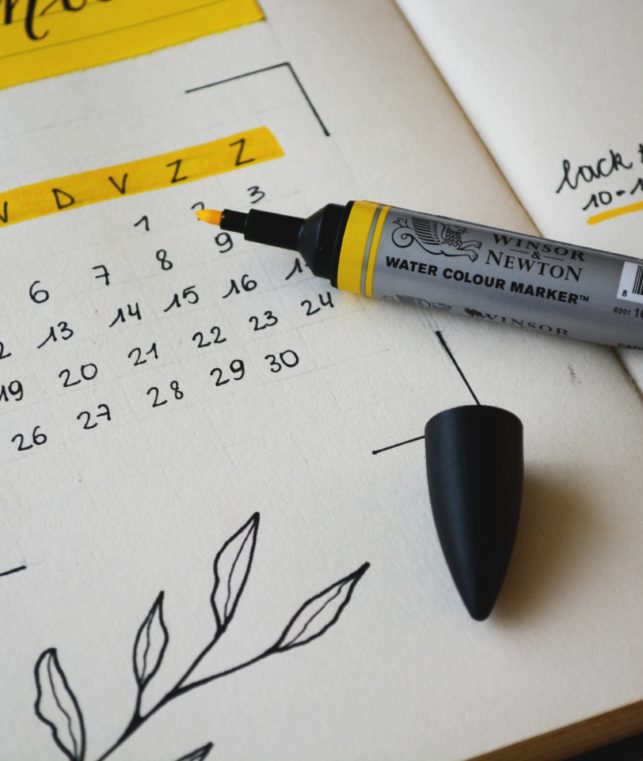 V D V Z Z
1 2 3
6 7 8 9
13 14 15 16
19 20 21 22 23 24
26 27 28 29 30
back
10-1
WINSOR
&
NEWTON
WATER COLOUR MARKER™
WINSOR
8
0201